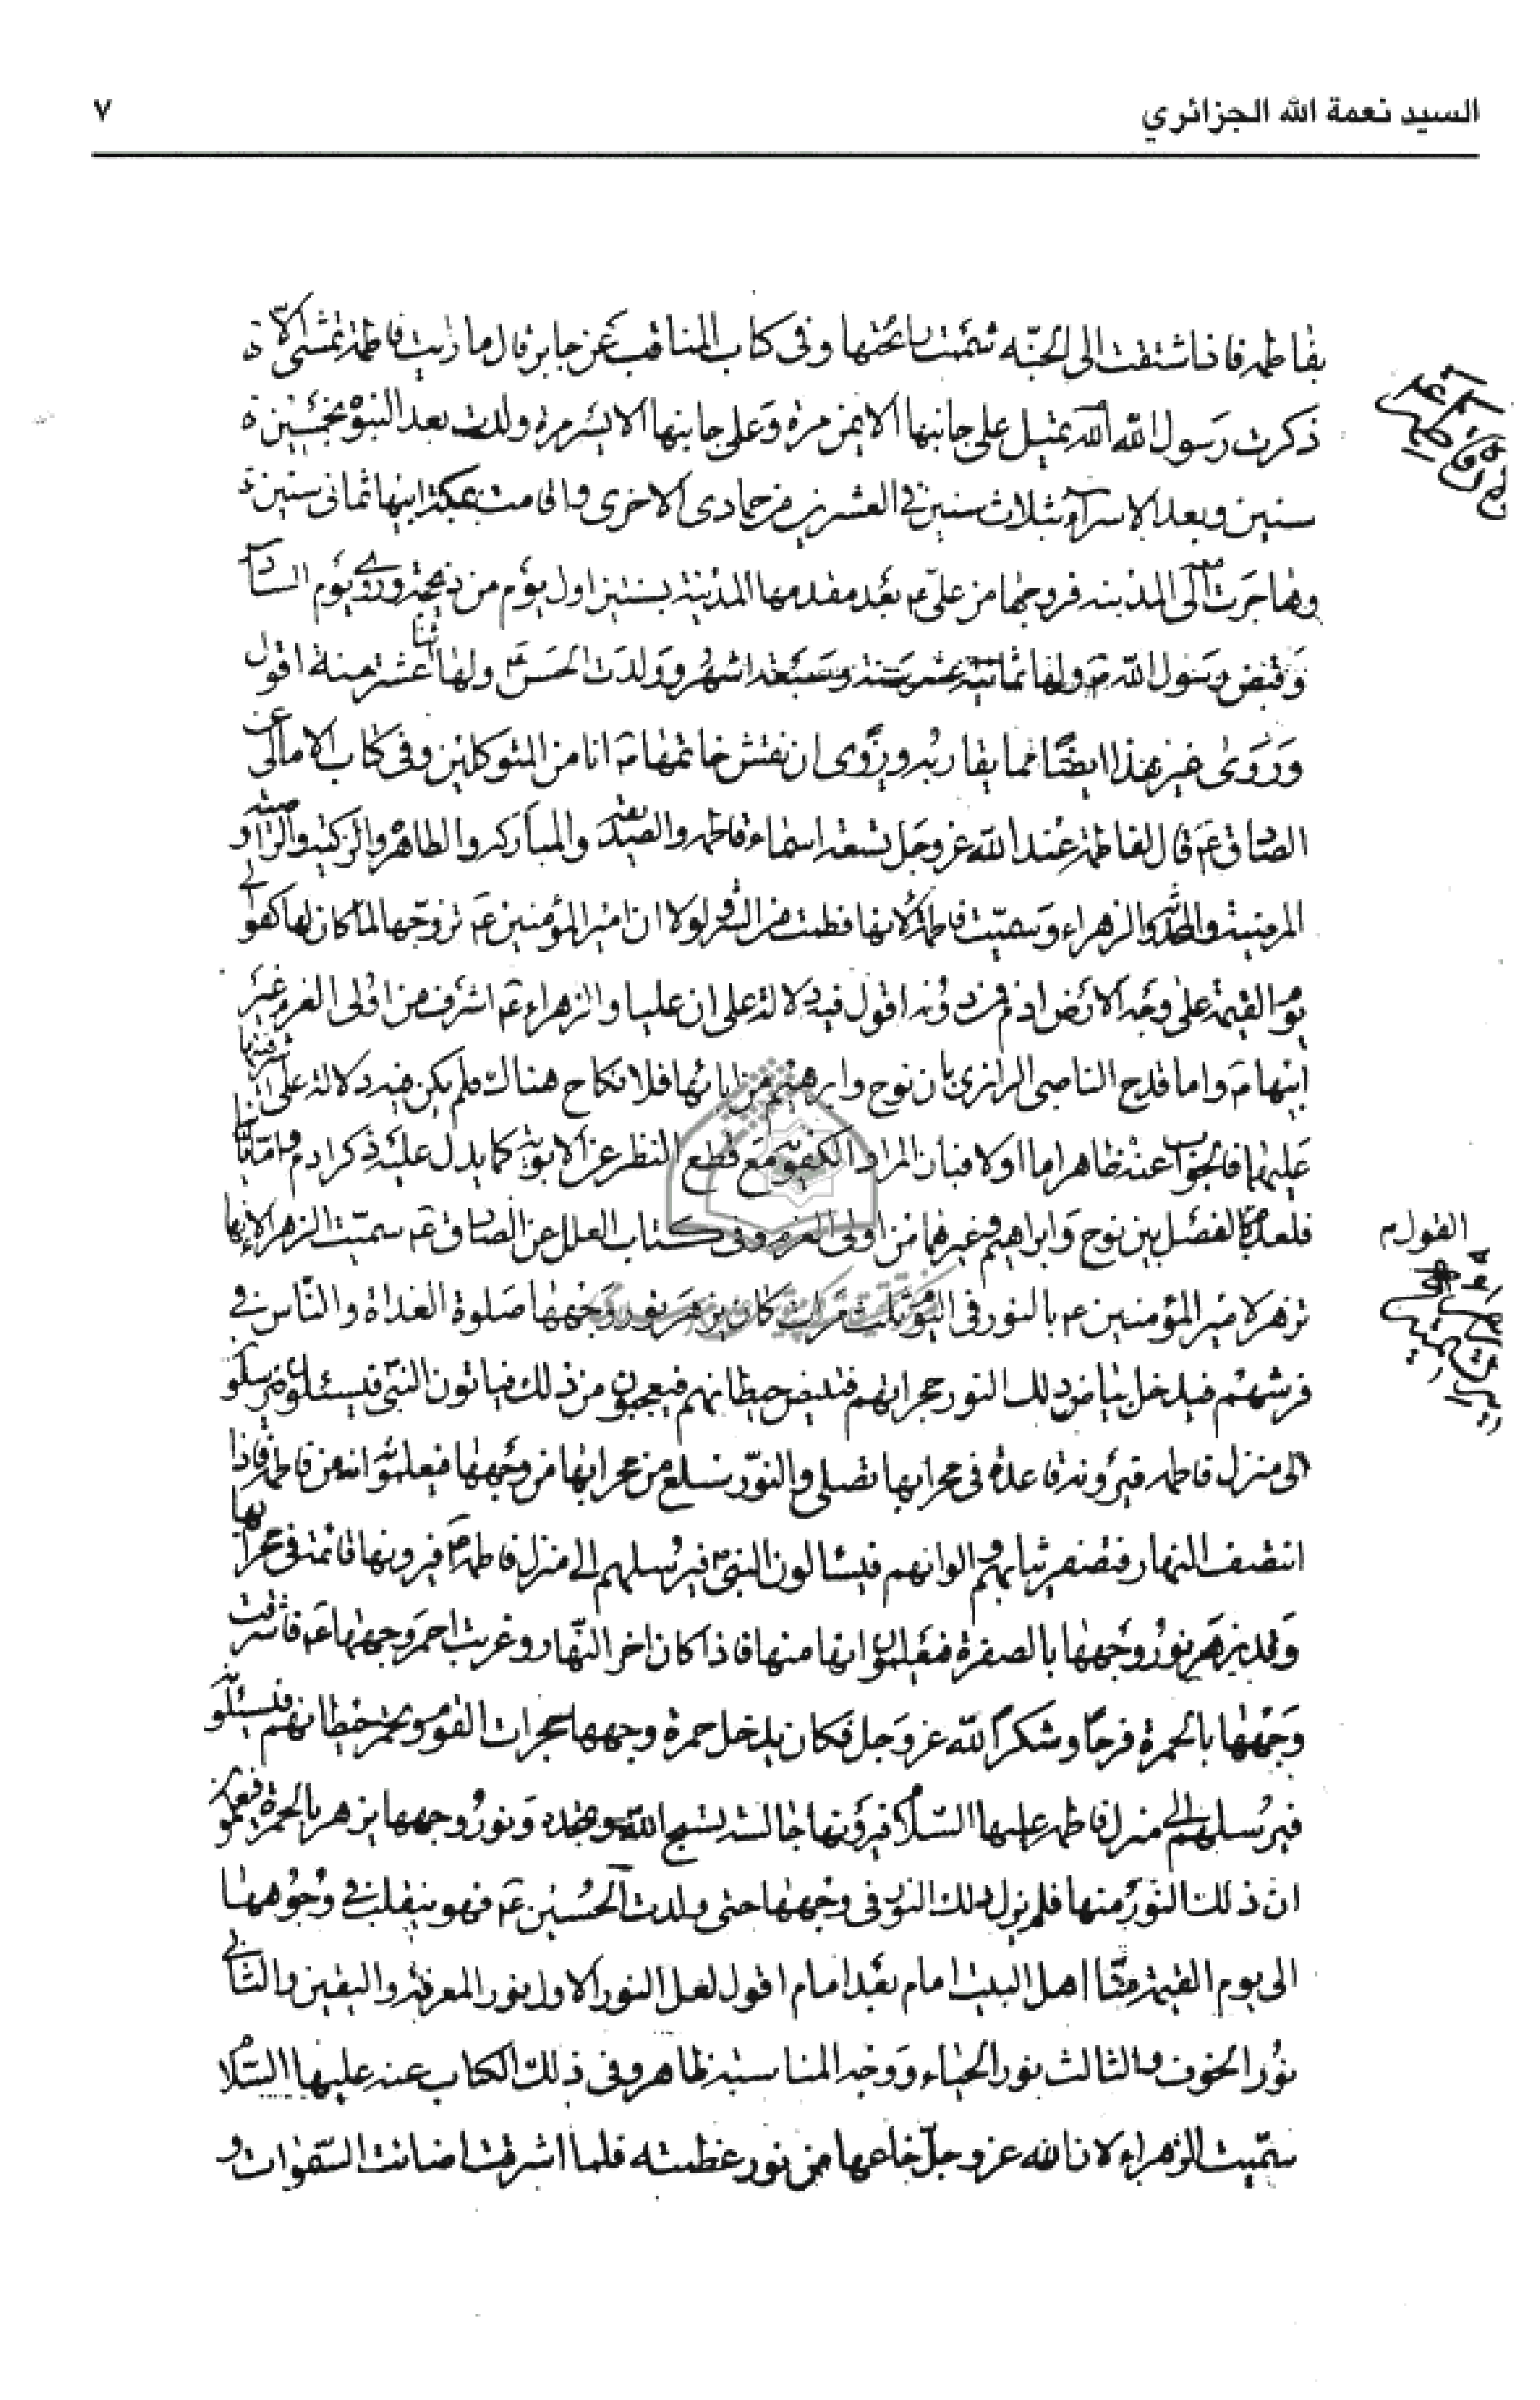 السيد نعمة الله الجزائري
٧
بفاطمة فاذا اشتقت الى الجنه شممت رائحتها وفى كتاب المناقب عن جابر قال ما رايت فاطمة تمشى الا
ذكرت رسول الله تميل على جانبها الايمن مرة وعلى جانبها الايسر مرة ولدت بعد النبوة بخمس
سنين وبعد الاسراء بثلاث سنين فى العشرين من جمادى الاخرى واقامت بمكة مع ابيها ثمانى سنين
وهاجرت الى المدينه فزوجها من على ع بعد مقدمها المدينة بسنتين اول يوم من ذيحجة وروى يوم السادس
وقبض رسول الله ص ولها ثمانية عشر سنة وسبعة اشهر وولدت الحسن ع ولها اثنا عشر سنة اقول
وروى غير هذا ايضًا مما يقاربه وروى ان نقش خاتمها ع انا من المتوكلين وفى كتاب الامالى عن
الصادق ع قال لفاطمة عند الله عز وجل تسعة اسماء فاطمه والصديقة والمباركه والطاهرة والزكيه والراضيه و
المرضية والمحدثه والزهراء وسميت فاطمة لانها فطمت من الشر ولولا ان امير المؤمنين ع تزوجها لما كان لها كفو الى
يوم القيمة على وجه الارض ادم فمن دونه اقول فيه دلالة على ان عليا والزهراء ع اشرف من اولى العزم غير
ابيها ص واما قدح الناصبى الرازى بان نوح وابرهيم من ابائها فلا نكاح هناك فلم يكن فيه دلالة على اشرفيتها
عليهما فالجواب عنه ظاهر اما اولا فبان المراد الكفويه مع قطع النظر عن الابوية كما يدل عليه ذكر ادم واما ثانيا
فلعدم القول بالفصل بين نوح وابراهيم وغيرهما من اولى العزم وفى كتاب العلل عن الصادق ع سميت الزهراء لانها
تزهر لامير المؤمنين ع بالنور فى اليوم ثلث مرات كان يزهر نور وجهها صلوة الغداة والناس فى
فرشهم فيدخل بياض ذلك النور حجراتهم فتبيض حيطانهم فيعجبون من ذلك فياتون النبى فيسئلونه فيرسلهم
الى منزل فاطمه فيرونها قاعدة فى محرابها تصلى والنور يسطع من محرابها من وجهها فيعلمون انه من فاطمة فاذا
انتصف النهار فتصفر ثيابهم والوانهم فيسالون النبى فيرسلهم الى منزل فاطمه ع فيرونها قائمة فى محرابها
وقد يزهر نور وجهها بالصفرة فيعلمون انها منها فاذا كان اخر النهار وغربت احمر وجهها ع فاشرقت
وجهها بالحمرة فرحًا وشكرًا لله عز وجل فكان يدخل حمرة وجهها حجرات القوم ويحمر حيطانهم فيسئلونه
فيرسلهم الى منزل فاطمه عليها السلام فيرونها جالسة تسبح الله وتمجده ونور وجهها يزهر بالحمرة فيعلمون
ان ذلك النور منها فلم يزل ذلك النور فى وجهها حتى ولدت الحسين ع فهو يتقلب فى وجوهنا
الى يوم القيمة منّا اهل البيت امام بعد امام اقول لعل النور الاول نور المعرفة واليقين والثانى
نور الخوف والثالث نور الحياء ووجه المناسبة ظاهر وفى ذلك الكتاب عنه عليها السلام
سميت الزهراء لان الله عز وجل خلقها من نور عظمته فلما اشرقت اضائت السموات و